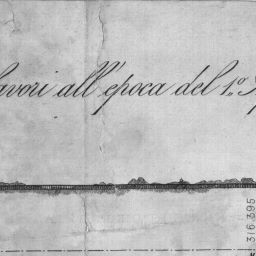 avori all'epoca del 1.º
316395